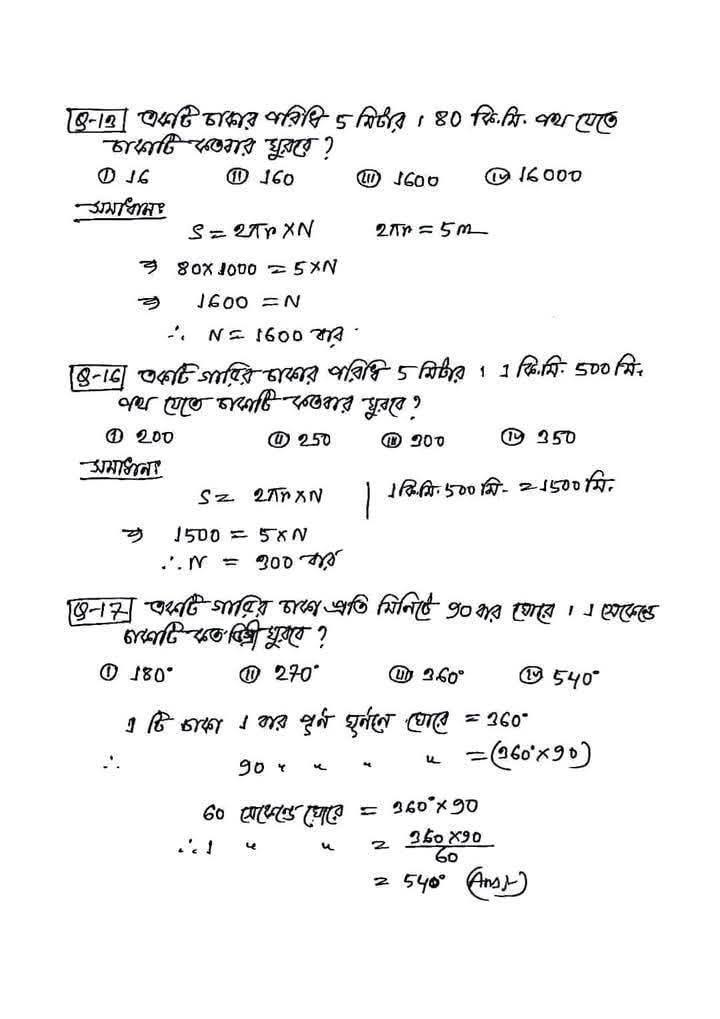 Q-13 একটি চাকার পরিধি 5 মিটার । 80 কি.মি. পথ যেতে
চাকাটি কতবার ঘুরবে ?
(i) 16 (ii) 160 (iii) 1600 (iv) 16000
সমাধানঃ
S = 2πr × N 2πr = 5m
⇒ 80×1000 = 5×N
⇒ 1600 = N
∴ N = 1600 বার
Q-16 একটি গাড়ির চাকার পরিধি 5 মিটার । 1 কি.মি. 500 মি.
পথ যেতে চাকাটি কতবার ঘুরবে ?
(i) 200 (ii) 250 (iii) 300 (iv) 350
সমাধানঃ
S = 2πr × N | 1 কি.মি. 500 মি. = 1500 মি.
⇒ 1500 = 5×N
∴ N = 300 বার
Q-17 একটি গাড়ির চাকা প্রতি মিনিটে 90 বার ঘোরে । 1 সেকেন্ডে
চাকাটি কত ডিগ্রী ঘুরবে ?
(i) 180° (ii) 270° (iii) 360° (iv) 540°
1 টি চাকা 1 বার পূর্ন ঘূর্ননে ঘোরে = 360°
∴ 90 " " " " = (360°×90)
60 সেকেন্ডে ঘোরে = 360°×90
∴ 1 " " = 360×90/60
= 540° (Ans)